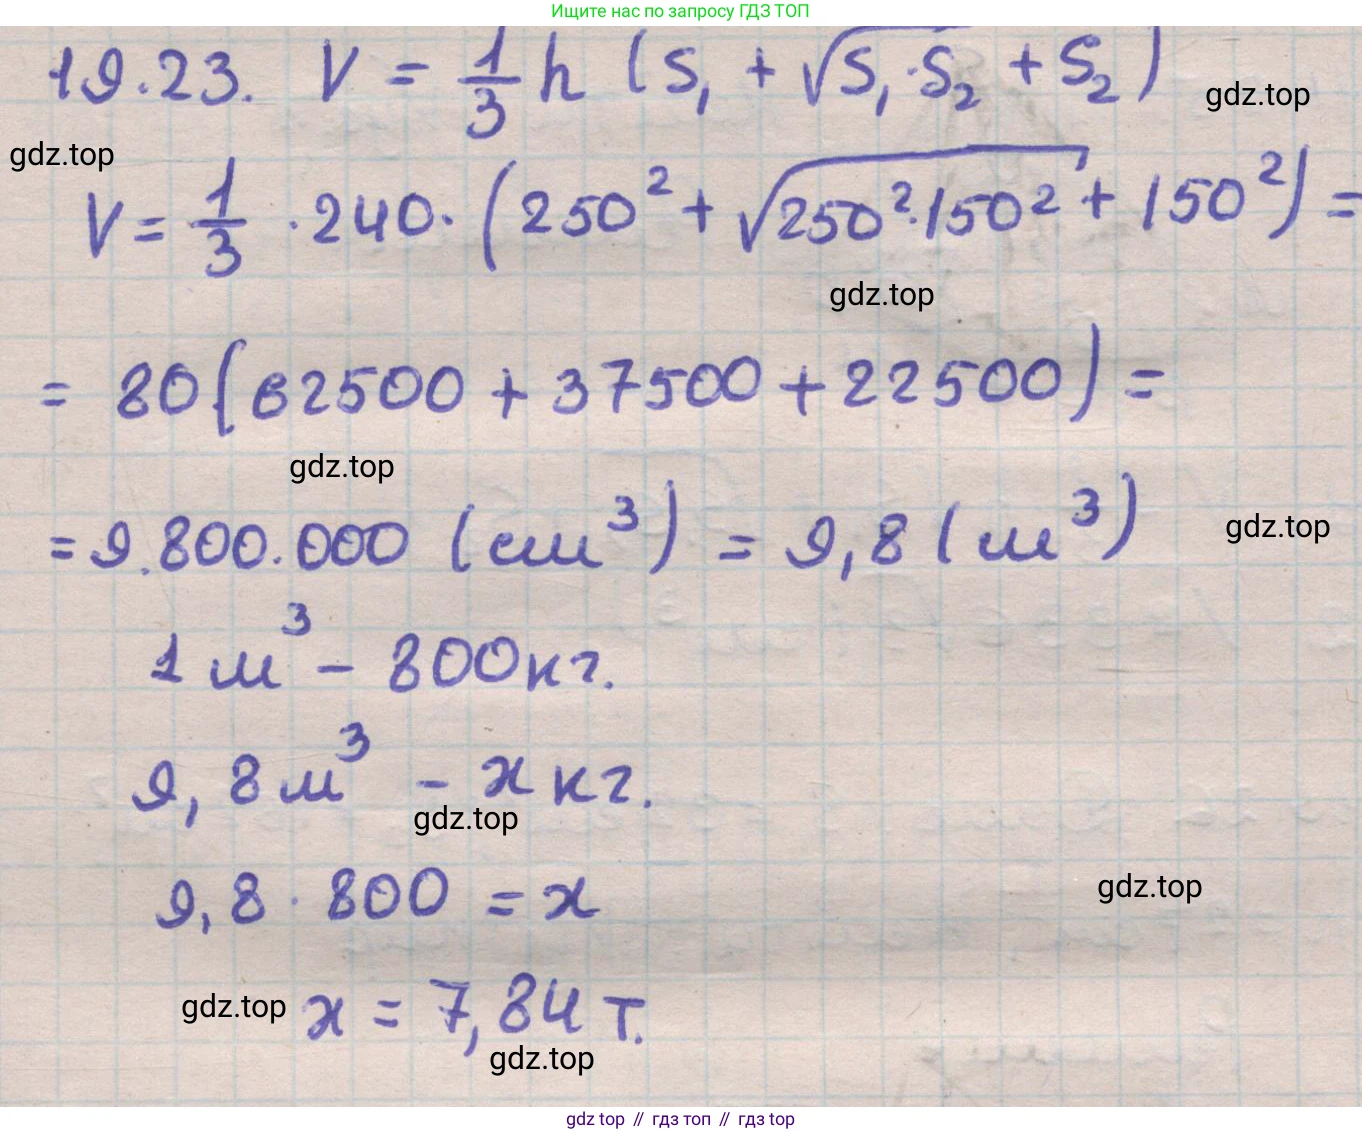 Ищите нас по запросу ГДЗ ТОП
19.23. V = 1/3 h (S₁ + √S₁·S₂ + S₂)
gdz.top
gdz.top
V = 1/3 · 240 · (250² + √250²·150² + 150²) =
gdz.top
= 80(62500 + 37500 + 22500) =
gdz.top
= 9.800.000 (см³) = 9,8 (м³)
gdz.top
1 м³ – 800кг.
9,8 м³ – x кг.
gdz.top
9,8 · 800 = x
gdz.top
gdz.top
x = 7,84 т.
gdz.top
gdz top // гдз топ // гдз top